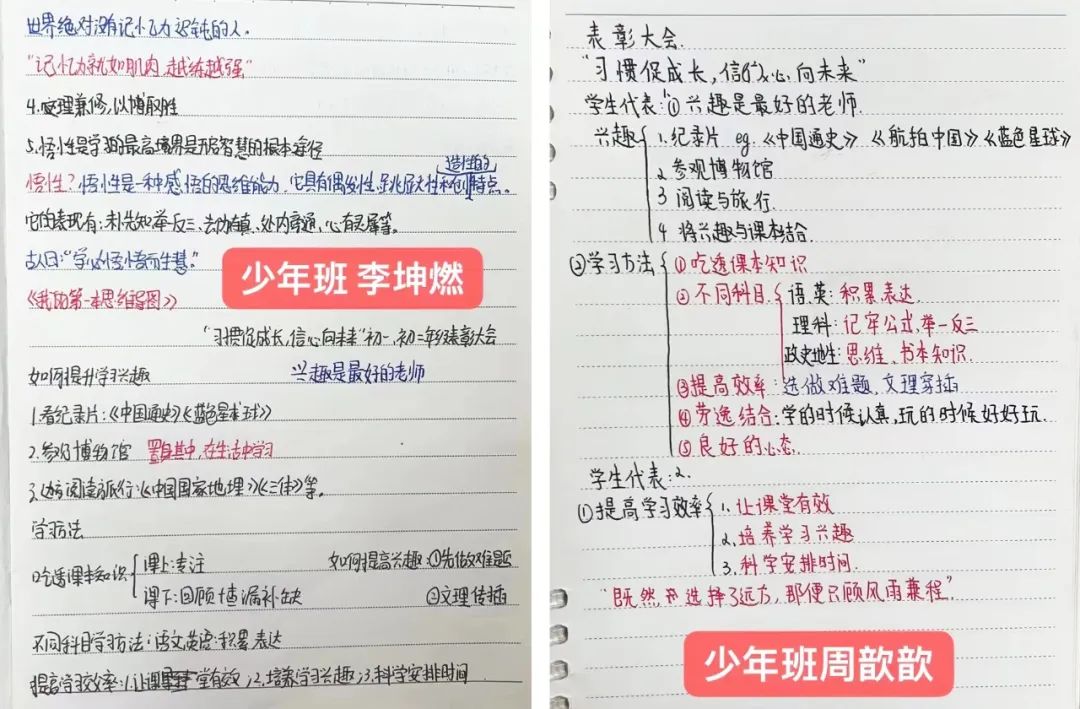 世界绝对没有记忆力迟钝的人。
"记忆力就如肌肉,越练越强"
4.文理兼修,以博取胜
5.悟性是学习的最高境界是开启智慧的根本途径
悟性?悟性是一种感悟的思维能力,它具有偶发性,跳跃性和创造性的特点。
它的表现有:未先知,举一反三、去伪存真、处内旁通、心有灵犀等。
古人曰:"学必悟,悟而生慧"
《我的第一本思维导图》
少年班 李坤燃
"习惯促成长,信心向未来"初一、初二年级表彰大会
如何提升学习兴趣 兴趣是最好的老师
1.看纪录片:《中国通史》《蓝色星球》
2.参观博物馆 置身其中,在生活中学习
3.边阅读边旅行:《中国国家地理》《三体》等。
学习方法
①吃透课本知识 课上:专注 如何提高兴趣:①先做难题
课下:回顾+查漏补缺 ②文理传插
不同科目学习方法:语文英语:积累表达
提高学习效率:1.让课堂有效;2.培养学习兴趣;3.科学安排时间
表彰大会.
"习惯促成长,信心向未来"
学生代表:①兴趣是最好的老师.
兴趣 1.纪录片 eg.《中国通史》《航拍中国》《蓝色星球》
2.参观博物馆
3 阅读与旅行.
4 将兴趣与课本结合.
②学习方法 ①吃透课本知识
②不同科目 语.英:积累.表达.
理科:记牢公式,举一反三
政史地生:思维、书本知识.
③提高效率:选做难题.文理穿插
④劳逸结合:学的时候认真,玩的时候好好玩.
⑤良好的心态.
学生代表:2.
①提高学习效率 1.让课堂有效
2.培养学习兴趣
3.科学安排时间.
"既然选择了远方,那便只顾风雨兼程"
少年班周歆歆